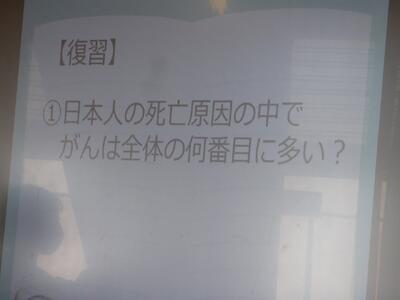 【復習】
①日本人の死亡原因の中で
がんは全体の何番目に多い？